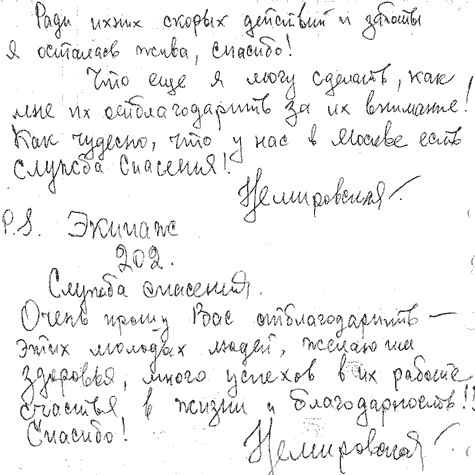 Ради ихних скорых действий и заботы
я осталась жива, спасибо!
Что еще я могу сделать, как
мне их отблагодарить за их внимание!
Как чудесно, что у нас в Москве есть
служба Спасения!
Немировская.
P.S. Экипаж
202.
Служба спасения.
Очень прошу Вас отблагодарить –
этих молодых людей, желаю им
здоровья, много успехов в их работе
счастья в жизни и благодарность!!
Спасибо!
Немировская.